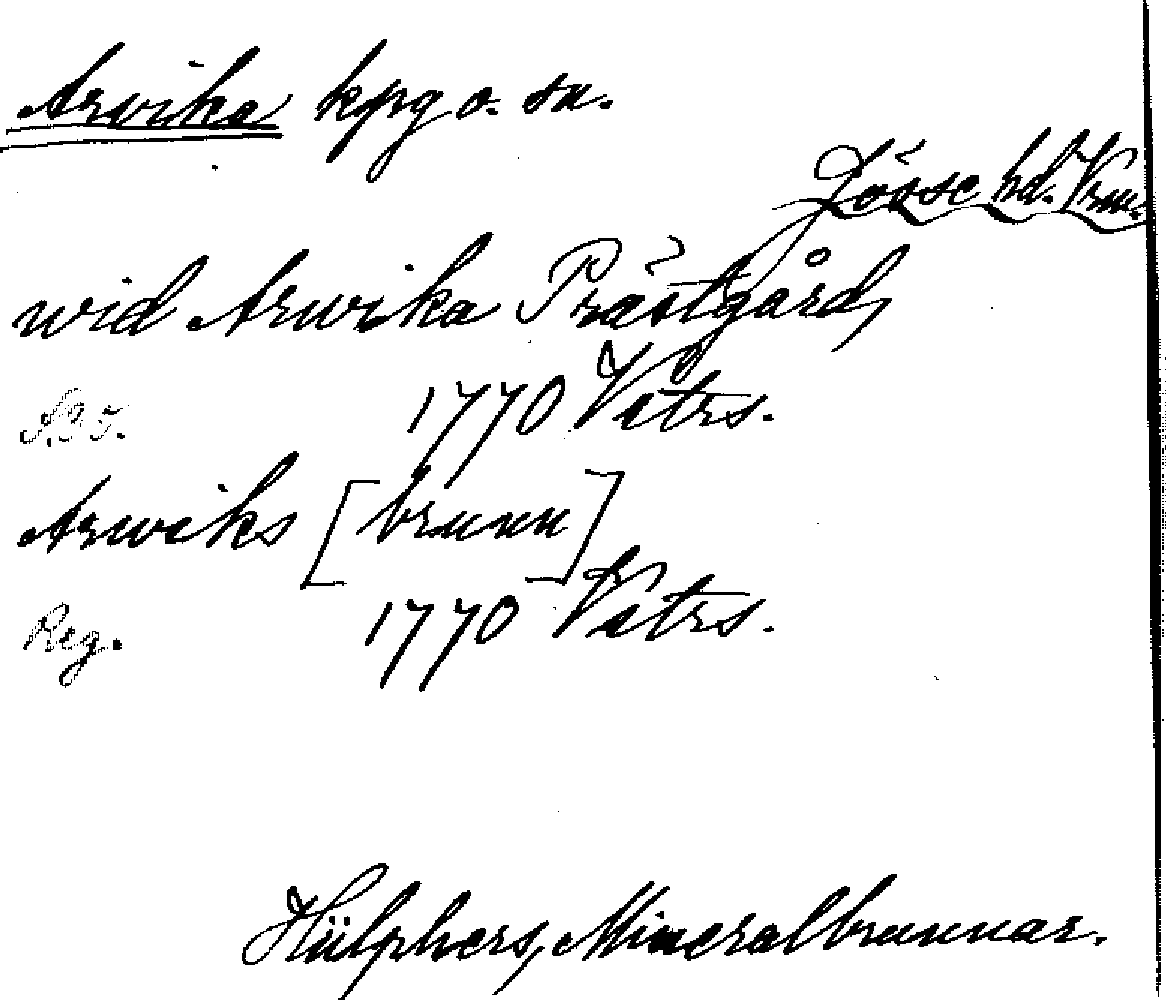 Arvika kpg o. sn.
Jösse hd. Vrm.
wid Arwika Prästgård,
S. 35. 1770 Våtrs.
Arwiks [brunn]
Reg. 1770 Våtrs.
Hülphers, Mineralbrunnar.